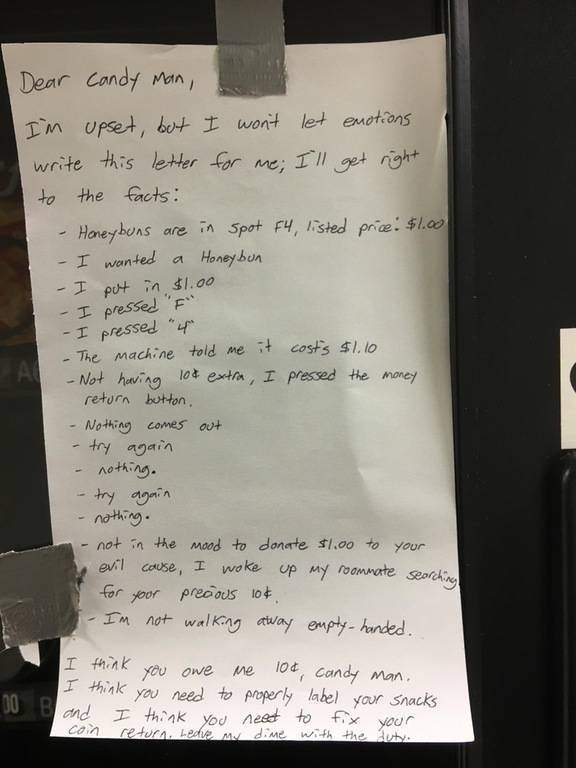 Dear Candy Man,
I'm upset, but I won't let emotions
write this letter for me; I'll get right
to the facts:
- Honeybuns are in spot F4, listed price: $1.00
- I wanted a Honeybun
- I put in $1.00
- I pressed "F"
- I pressed "4"
- The machine told me it costs $1.10
- Not having 10¢ extra, I pressed the money
return button.
- Nothing comes out
- try again
- nothing.
- try again
- nothing.
- not in the mood to donate $1.00 to your
evil cause, I woke up my roommate searching
for your precious 10¢.
- I'm not walking away empty-handed.
I think you owe me 10¢, candy man.
I think you need to properly label your snacks
and I think you need to fix your
coin return. Leave my dime with the duty.
00 B